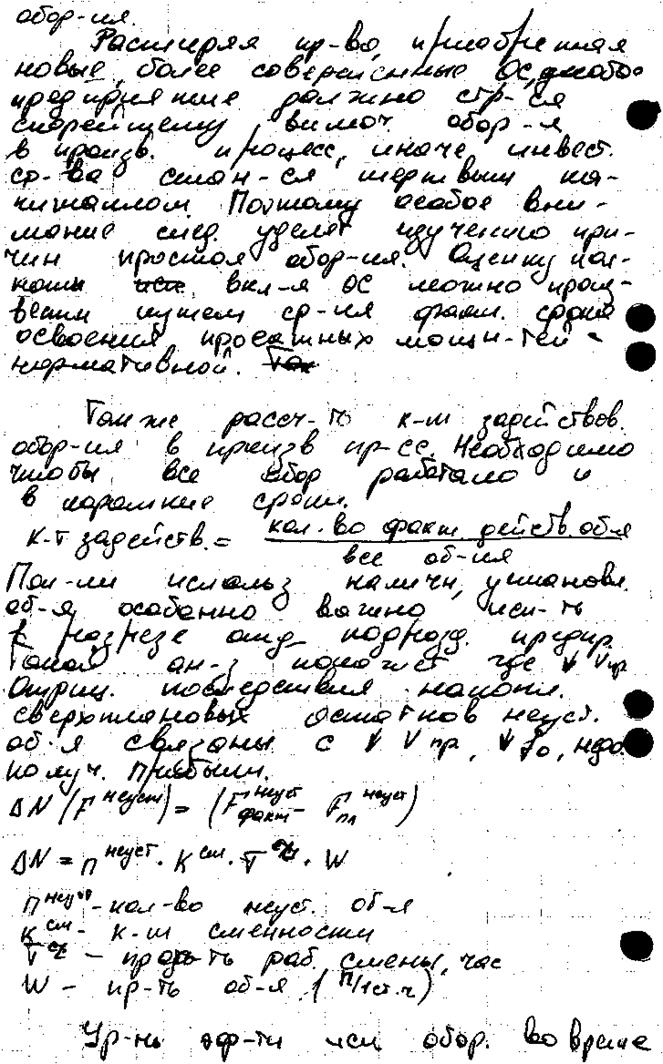 обор-ия.
Расширяя пр-во, приобретая
новые, более совершенные ОС,
предприятие должно стр-ся
скорейшему включ. обор-я
в произв. процесс, иначе инвест.
ср-ва стан-ся мертвым ка-
питалом. Поэтому особое вни-
мание след. уделят изучению при-
чин простоя обор-ия. Оценку пол-
ноты вкл-я ОС можно произ-
вести путем ср-ия факт. срока
освоения проектных мощн-тей с
нормативной.
Также рассч-ть к-т задействов.
обор-ия в произв пр-се. Необходимо
чтобы все обор работало и
в короткие сроки.
к-т задейств. = кол-во факт. действ. об-я
все об-ия
Пол-ли использ наличн, установл.
об-я особенно важно исп-ть
в разрезе отд. подразд. предпр.
Такой ан-з покажет где ↓ Vпр
Отриц. последствия накопл.
сверхплановых остатков неуст.
об-я связаны с ↓ Vпр, ↓ fо, недо
получ. прибыли.
ΔN (F неуст) = (F неуст факт - F неуст пл)
ΔN = n неуст. · K см. · T · W
n неуст - кол-во неуст. об-я
K см - к-т сменности
T - прод-ть раб. смены, час
W - пр-ть об-я (п/1ст.ч)
Ур-нь эф-ти исп обор. во време